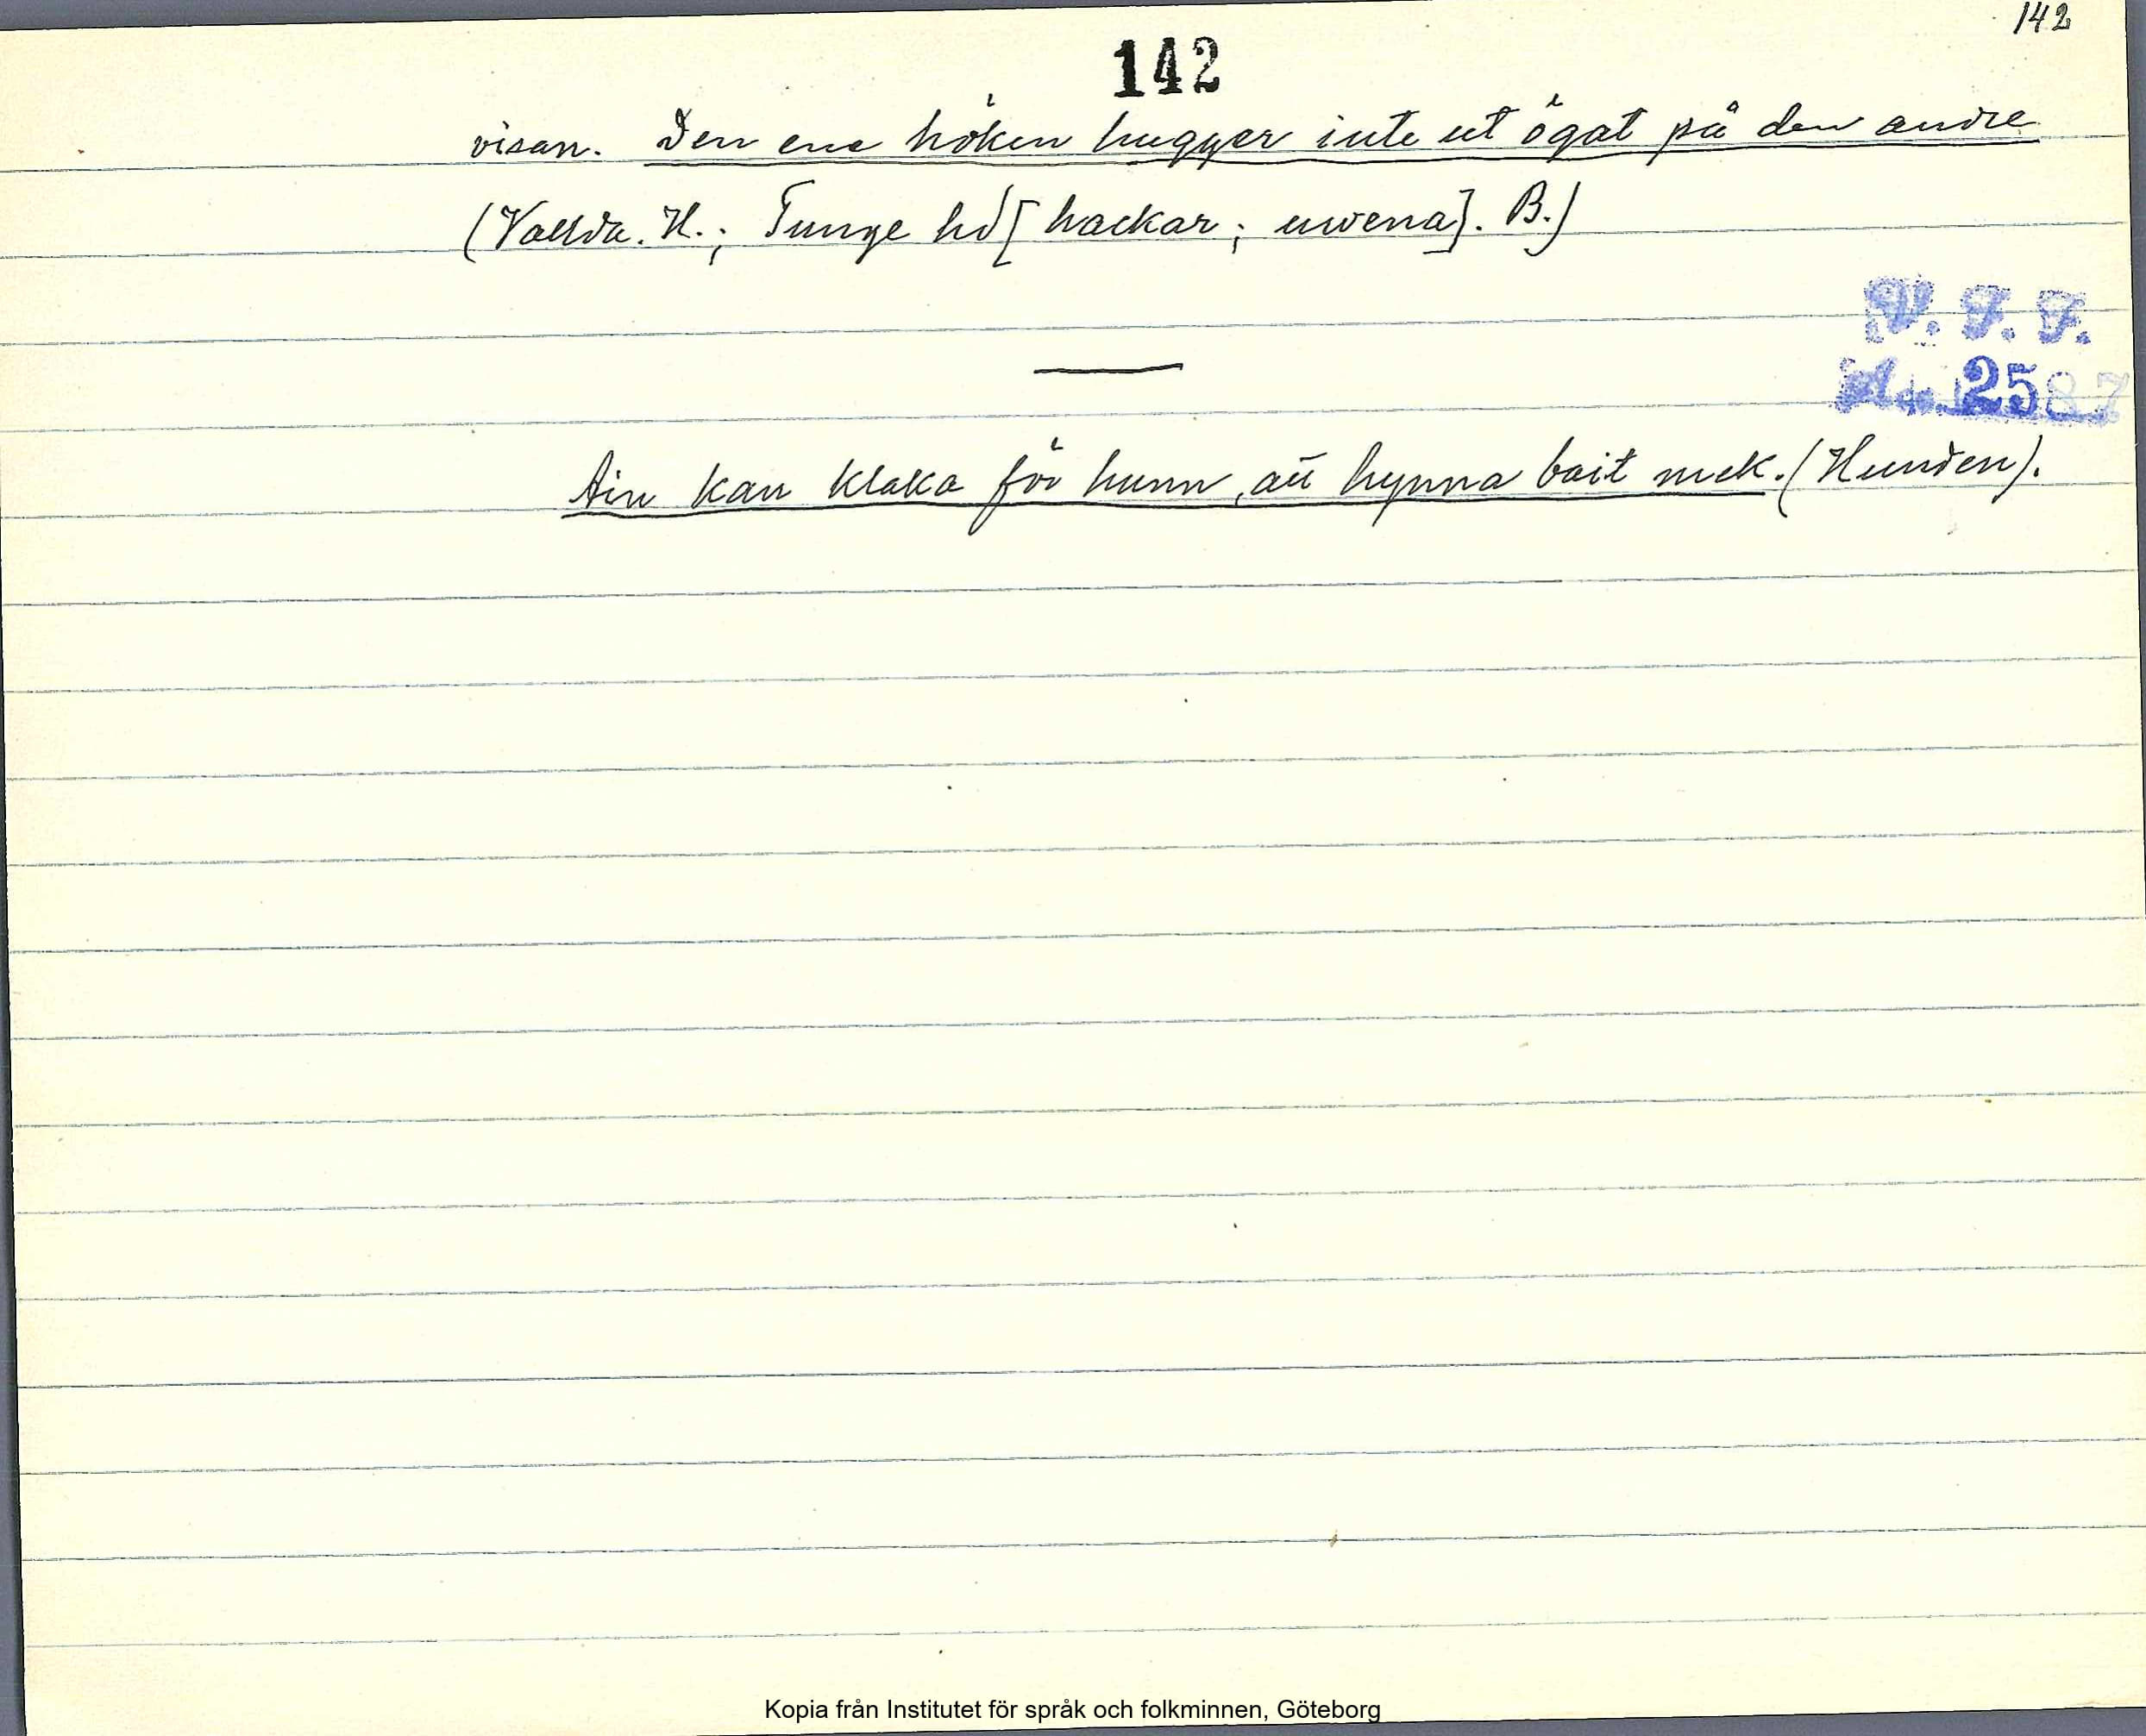 142
142
visan. Den ene höken hugger inte ut ögat på den andre
(Vallda. H.; Tunge hd [hackar; uwena]. B.)
V. F. F.
Acc. 2587
Ain kan klaka för hunn, att hynna bait mek. (Hunden).
Kopia från Institutet för språk och folkminnen, Göteborg